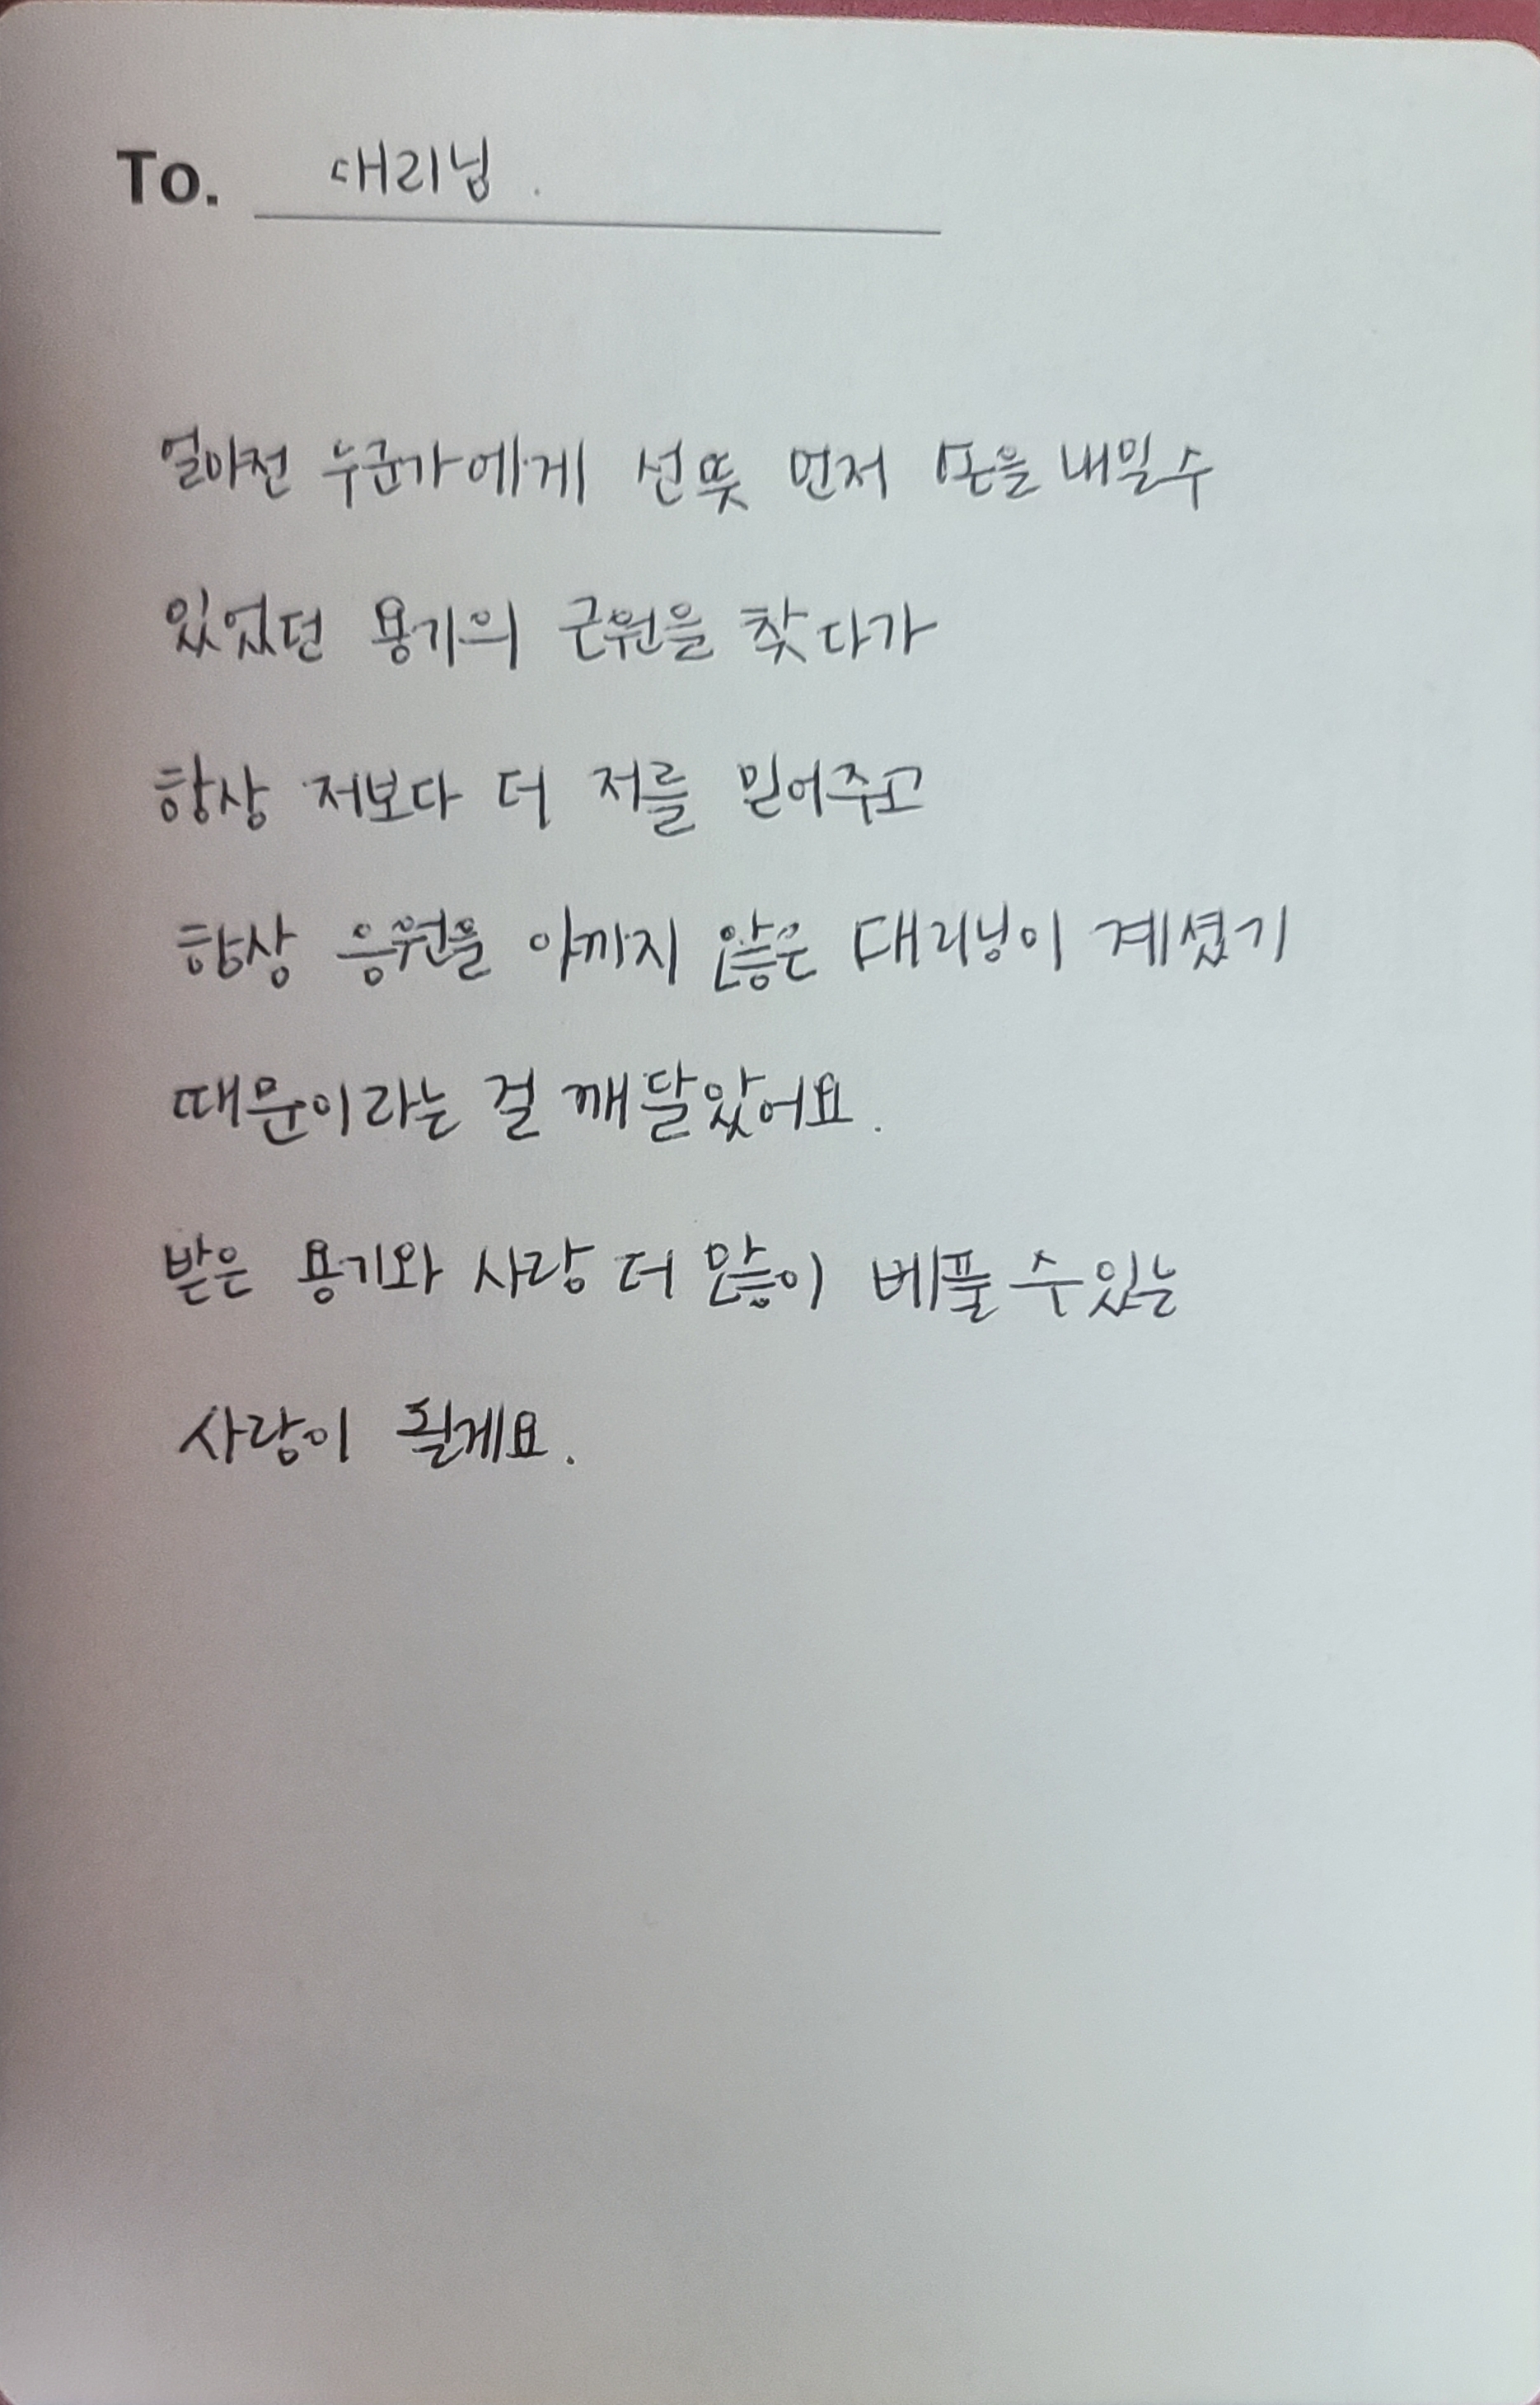 To. 대리님.
얼마전 누군가에게 선뜻 먼저 손을 내밀수
있었던 용기의 근원을 찾다가
항상 저보다 더 저를 믿어주고
항상 응원을 아끼지 않은 대리님이 계셨기
때문이라는 걸 깨달았어요.
받은 용기와 사랑 더 많이 베풀 수 있는
사람이 될게요.